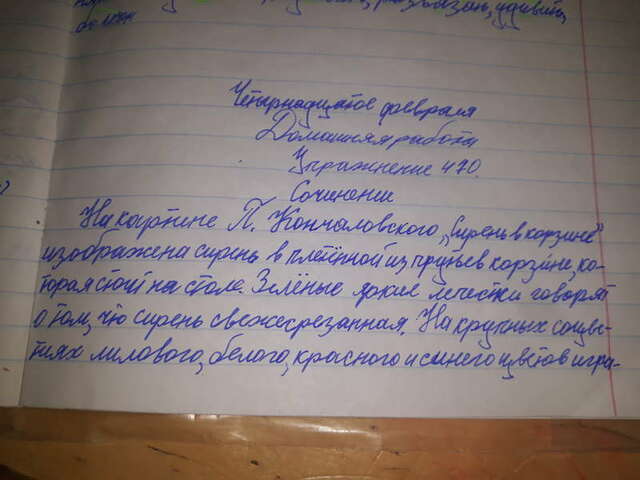 разбазан, удивит,
Четырнадцатое февраля
Домашняя работа
Упражнение 470.
Сочинение
На картине П. Кончаловского „Сирень в корзине"
изображена сирень в плетённой из прутьев корзине, ко-
торая стоит на столе. Зелёные яркие лепестки говорят
о том, что сирень свежесрезанная. На крупных соцве-
тиях лилового, белого, красного и синего цветов игра-